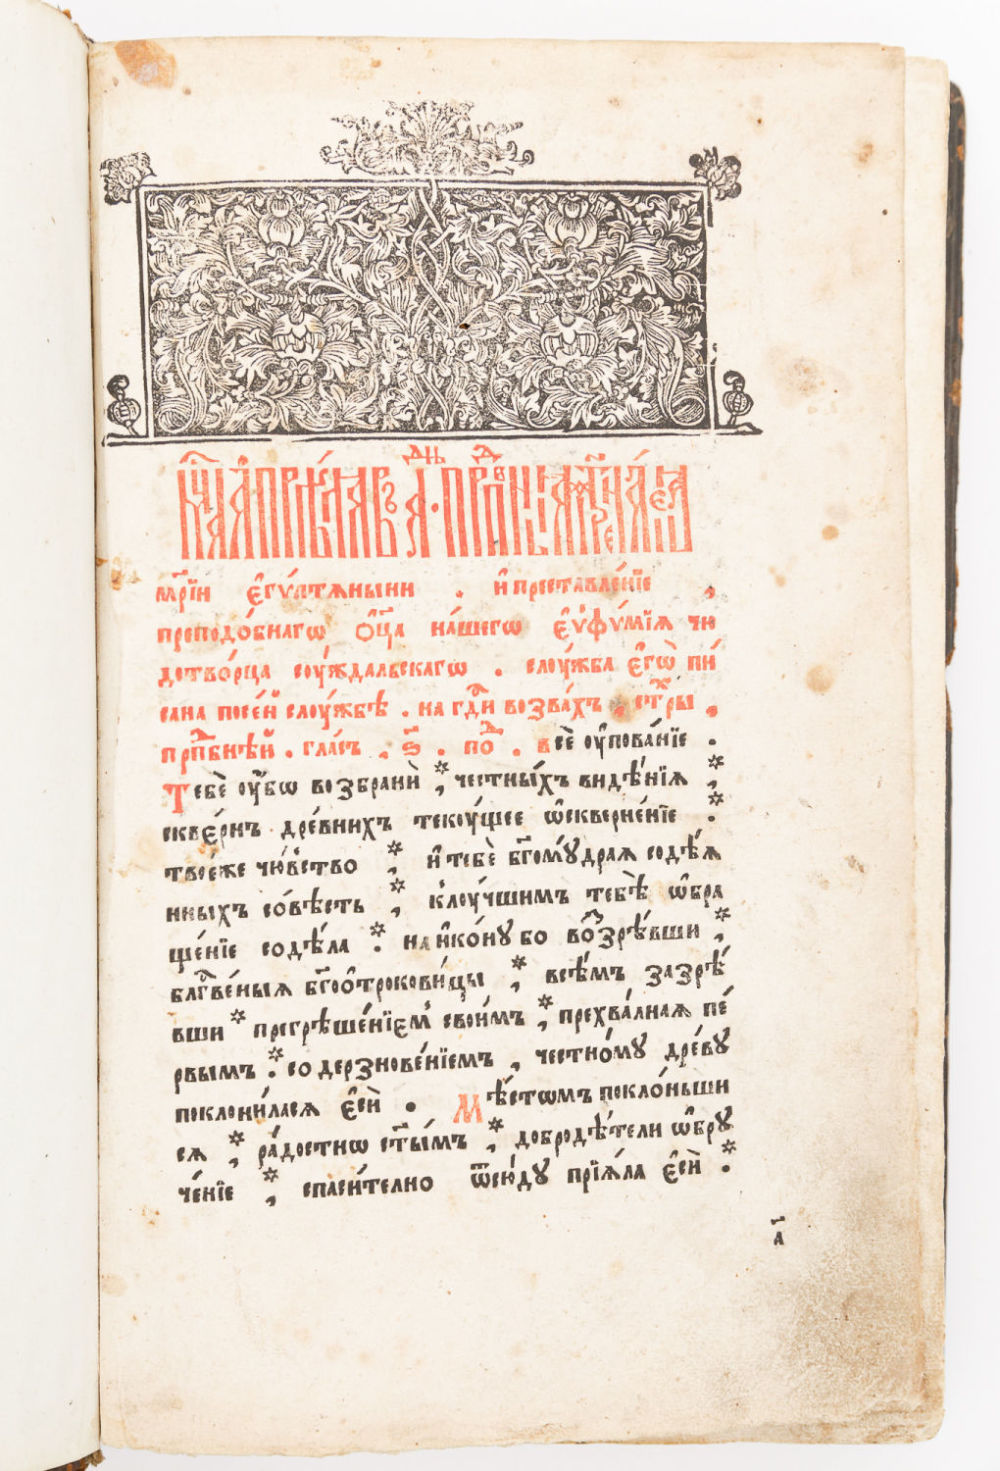 мр҃їи є҆гѵ́птѧныни . и҆ преставле́нїе ,
преподо́бнагѡ ѻ҆ц҃а на́шегѡ є҆ѵ҆фѵ́мїѧ чю
дотво́рца соу́ждальскагѡ . слоу́жба є҆гѡ̀ пи́
сана посе́й слоу́жбѣ . на гд҇и возва́хъ , ст҇ры ,
прпⷣбнѣй . гла́съ , ѕ҃ . поⷣ . всѐ оу҆пова́нїе .
Тебѐ оу҆́бѡ возбранѝ , че́стныхъ видѣ́нїѧ ,
скве́рнъ дре́внихъ текоу́щее ѡ҆скверне́нїе .
твое́же чю́вство , и҆ тебѐ бг҃омꙋ́драѧ содѣ́ѧ
нныхъ со́вѣсть , к̾лоу́чшимъ тебѣ̀ ѡ҆бра
ще́нїе содѣ́ла . на и҆ко́нꙋ бо воⷥзрѣ́вши ,
блг҇ве́ныѧ бг҃оо҆трокови́цы , всѣ́мъ зазрѣ́
вши прегрѣше́нїємъ свои́мъ , прехва́лнаѧ пе́
рвымъ . со дерзнове́нїемъ , честно́мꙋ дре́вꙋ
поклони́ласѧ є҆сѝ . Мѣ́стѡмъ покло́ньши
сѧ , ра́достнѡ ст҃ы́мъ , добродѣ́тели ѡ҆брꙋ
че́нїе , спаси́телно ѿсю́дꙋ прїѧ́ла є҆сѝ .
а҃